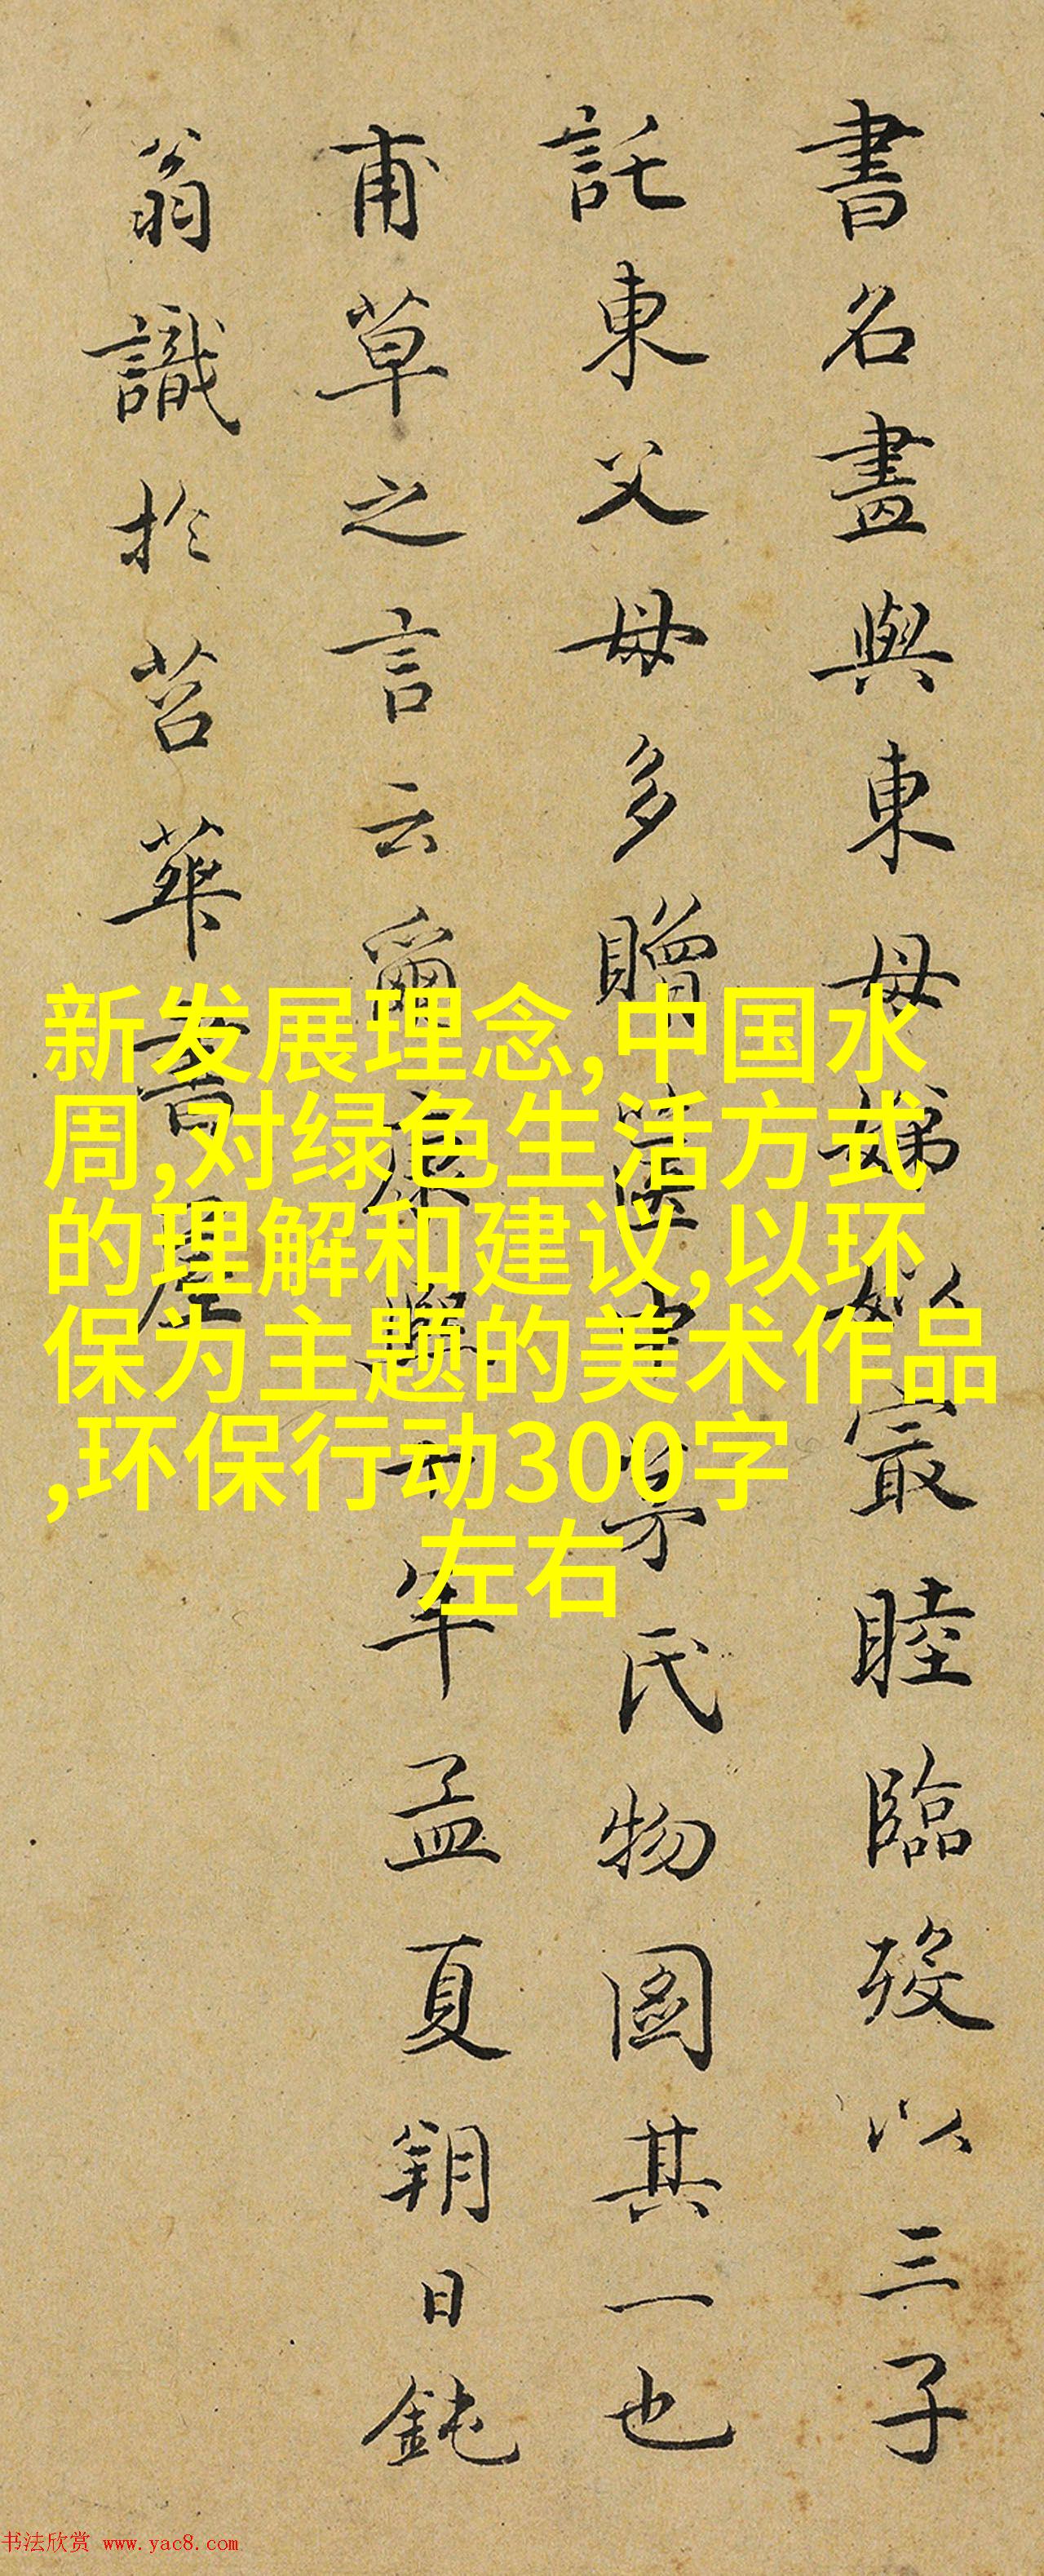 書名畫與東母娣姒最睦臨歿以三子
託東父母多贈氏物圖其一也
甫草之言云爾康熙十年孟夏朔日鈍
翁識於苕華書屋
新发展理念,中国水
周,对绿色生活方式
的理解和建议,以环
保为主题的美术作品
,环保行动300字
左右
书法欣赏 www.yac8.com